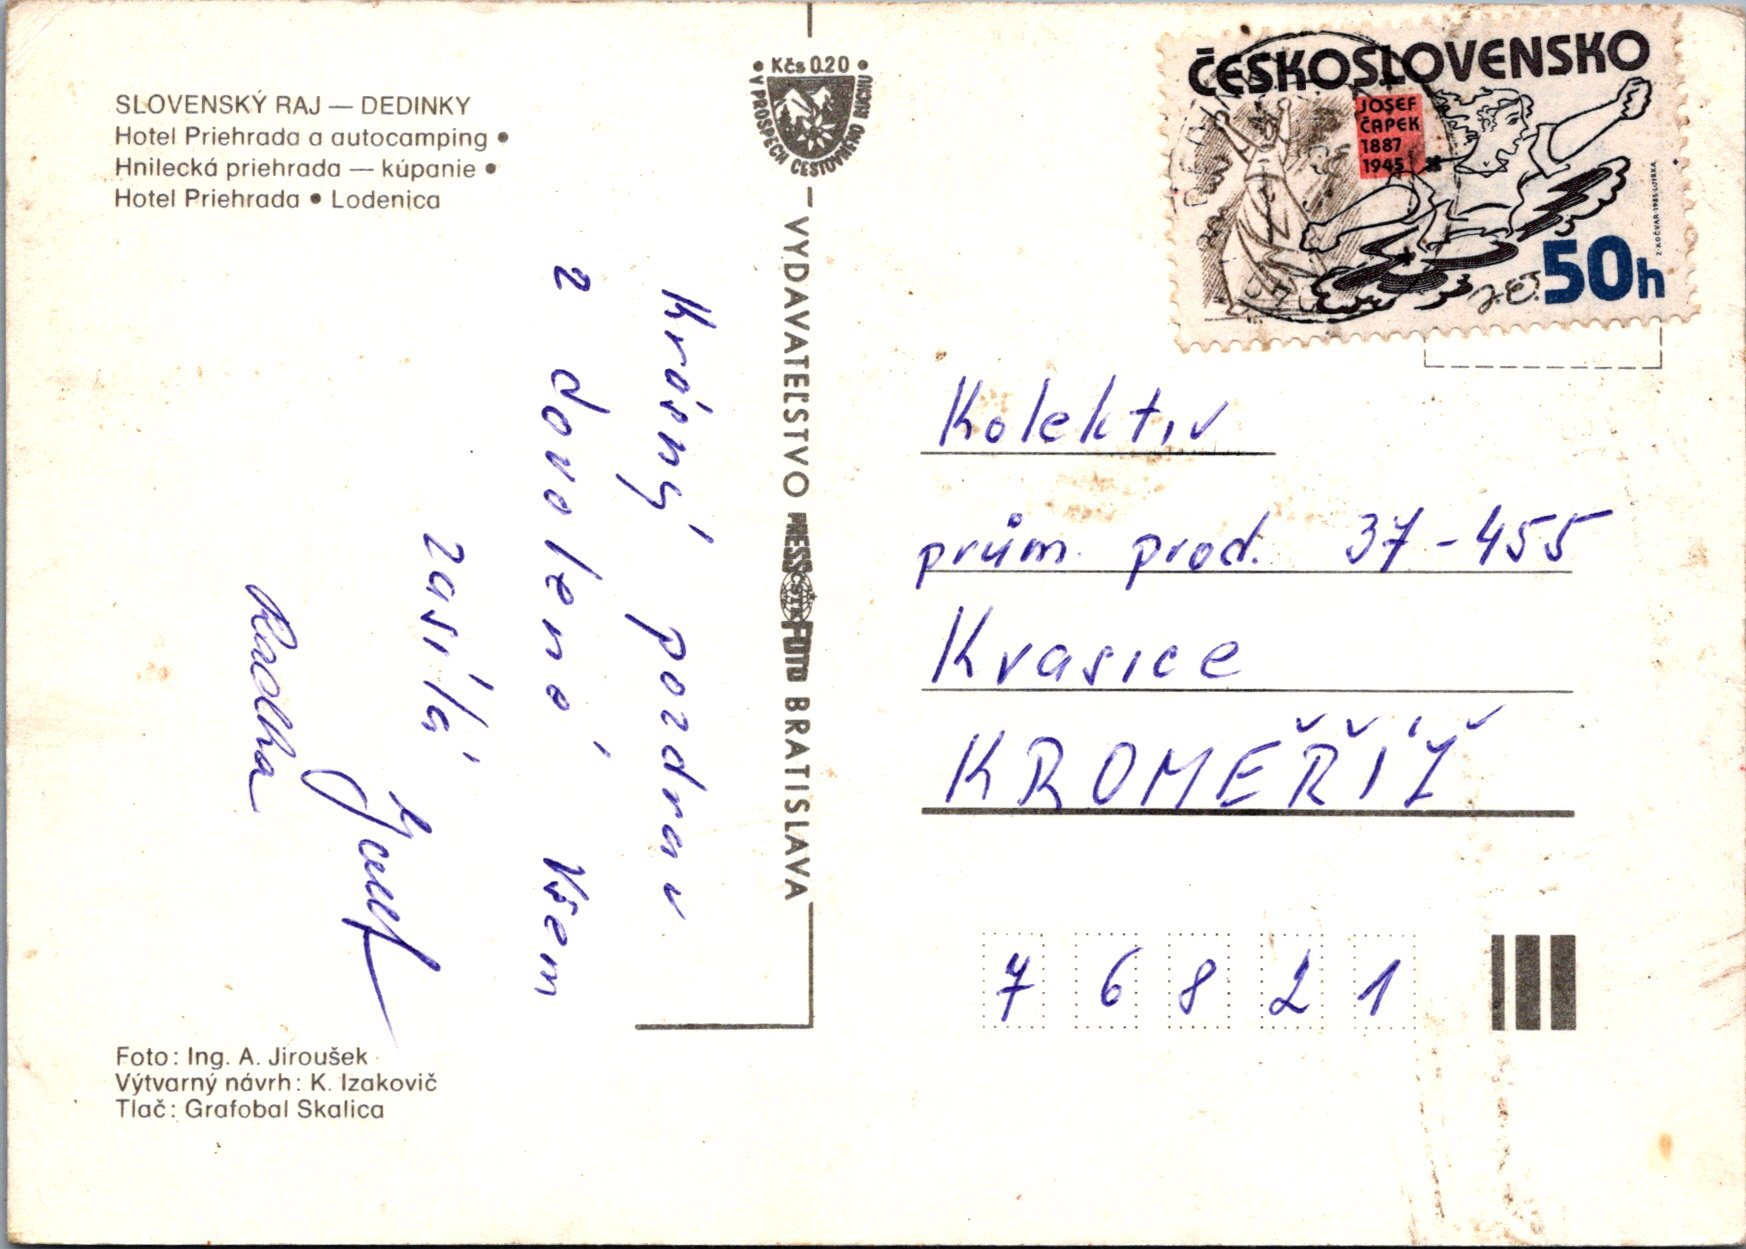 SLOVENSKÝ RAJ — DEDINKY
Hotel Priehrada a autocamping •
Hnilecká priehrada — kúpanie •
Hotel Priehrada • Lodenica
• Kčs 0.20 •
V PROSPECH CESTOVNÉHO RUCHU
VYDAVATEĽSTVO PRESSFOTO BRATISLAVA
ČSTK
ČESKOSLOVENSKO
JOSEF
ČAPEK
1887
1945
50h
Krásný pozdrav
z dovolené Všem
zasílá
Josef
Radka
Kolektiv
prům. prod. 37-455
Kvasice
KROMĚŘÍŽ
76821
Foto: Ing. A. Jiroušek
Výtvarný návrh: K. Izakovič
Tlač: Grafobal Skalica